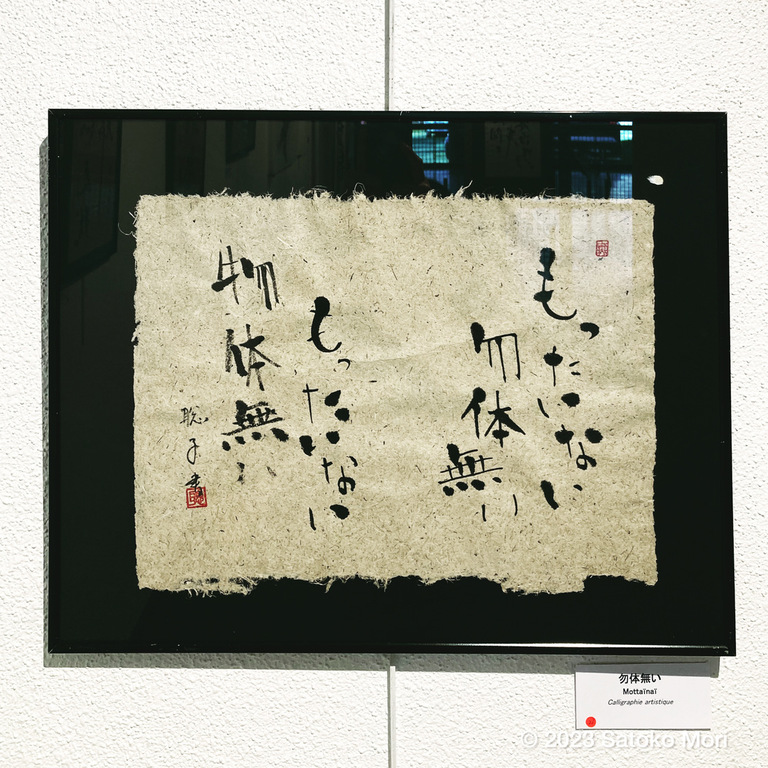 もったいない
勿体無い
もったいない
物体無い
聡子書
勿体無い
Mottaïnaï
Calligraphie artistique
© 2023 Satoko Mori